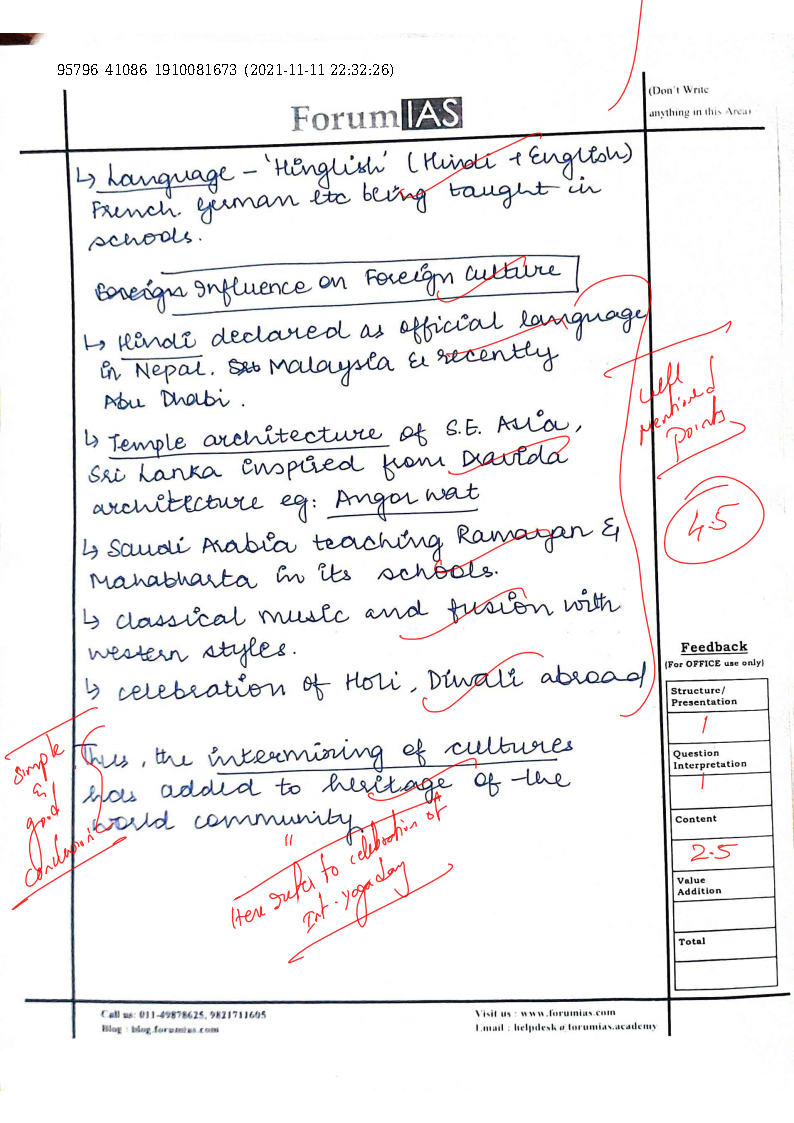 95796 41086 1910081673 (2021-11-11 22:32:26)
(Don't Write
anything in this Area)
ForumIAS
↳ Language – 'Hinglish' (Hindi + English)
French. German etc being taught in
schools.
Foreign Influence on Foreign Culture
↳ Hindi declared as official language
in Nepal. Malaysia & recently
Abu Dhabi.
↳ Temple architecture of S.E. Asia,
Sri Lanka inspired from Dravida
architecture eg: Angor wat
↳ Saudi Arabia teaching Ramayan &
Mahabharta in its schools.
↳ classical music and fusion with
western styles.
↳ celebration of Holi, Diwali abroad
Well
Mentioned
points
4.5
Feedback
(For OFFICE use only)
Structure/
Presentation
1
Question
Interpretation
1
Content
2.5
Value
Addition
Total
Thus, the intermixing of cultures
has added to heritage of the
world community
Simple
&
good
conclusion
Here refer to celebration of
Int. yoga day
Call us: 011-49878625, 9821711605
Blog : blog.forumias.com
Visit us : www.forumias.com
Email : helpdesk@forumias.academy